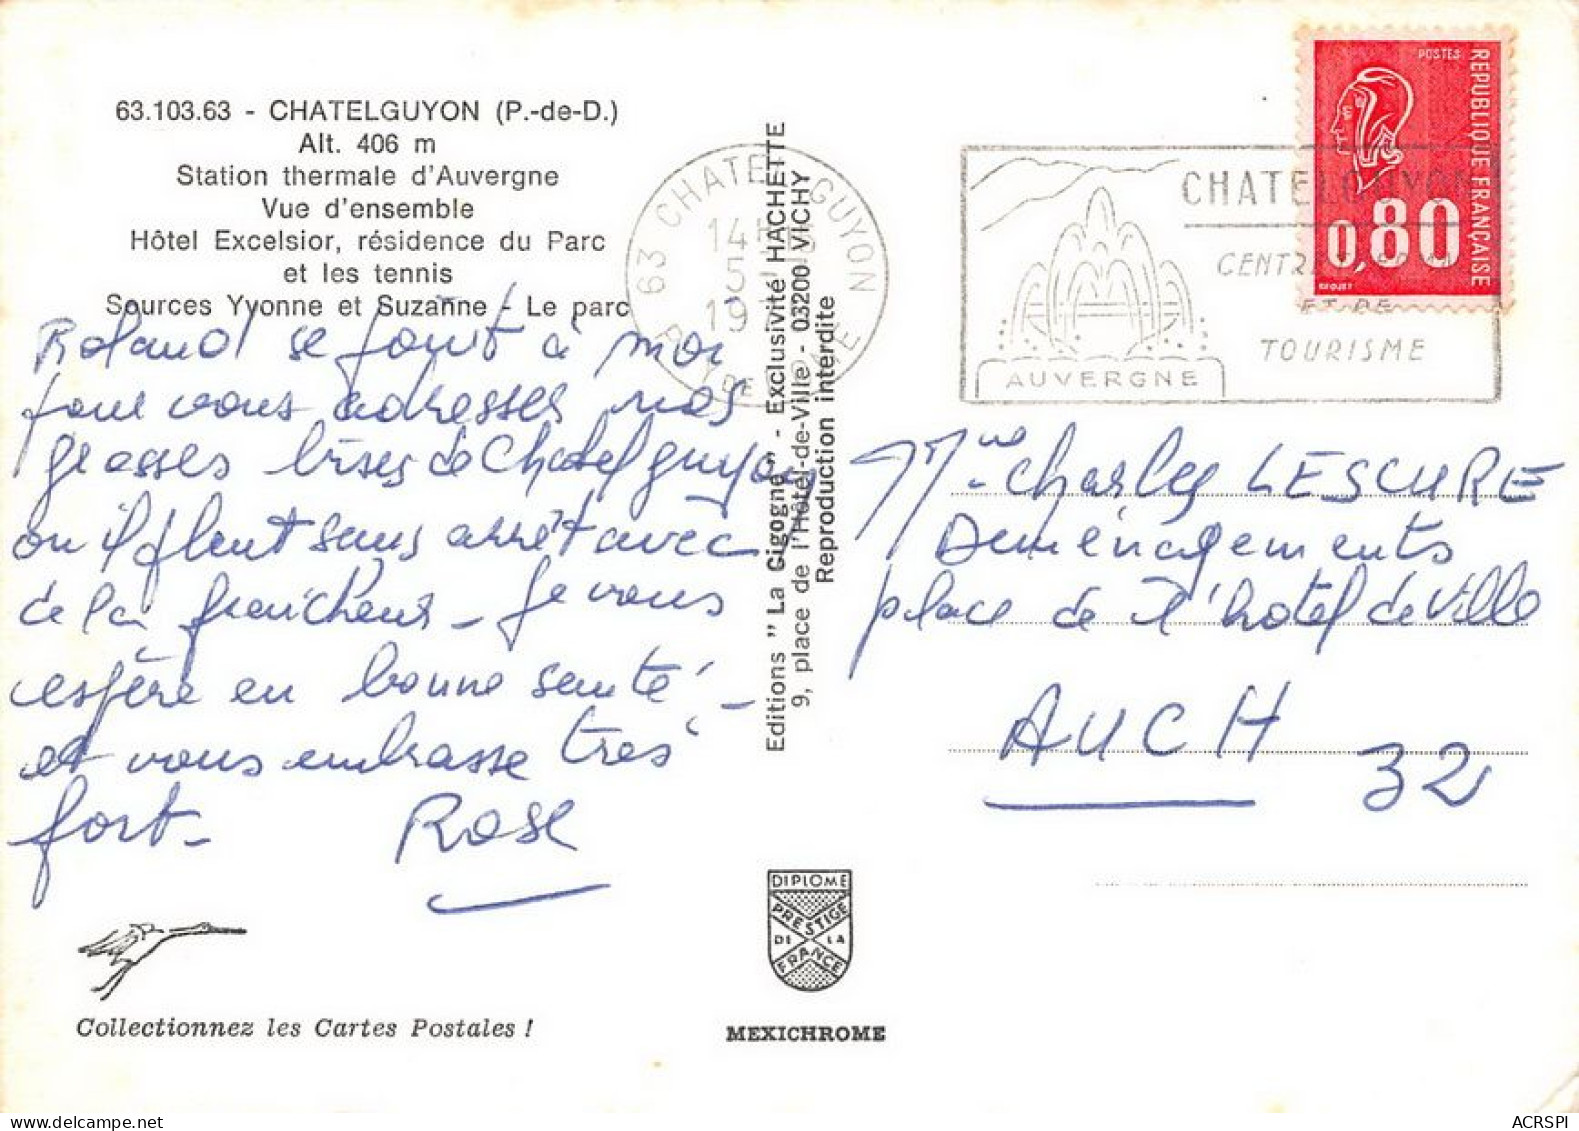 63.103.63 - CHATELGUYON (P.-de-D.)
Alt. 406 m
Station thermale d'Auvergne
Vue d'ensemble
Hôtel Excelsior, résidence du Parc
et les tennis
Sources Yvonne et Suzanne - Le parc
Roland se joint à moi
pour vous adresser nos
grosses bises de Chatelguyon
ou il pleut sans arrêt avec
de la fraicheur - je vous
espère en bonne santé -
et vous embrasse très
fort -
Rose
Collectionnez les Cartes Postales !
Editions "La Cigogne" - Exclusivité HACHETTE
9, place de l'Hôtel-de-Ville - 03200 VICHY
Reproduction interdite
DIPLOME
PRESTIGE
DE LA
FRANCE
MEXICHROME
63 CHATELGUYON
14H
5
19
PUY DE DOME
CHATELGUYON
CENTRE
ET DE
TOURISME
AUVERGNE
POSTES
REPUBLIQUE FRANÇAISE
0,80
Mme Charles LESCURE
Déménagements
place de l'hotel de Ville
AUCH
32
ACRSPI